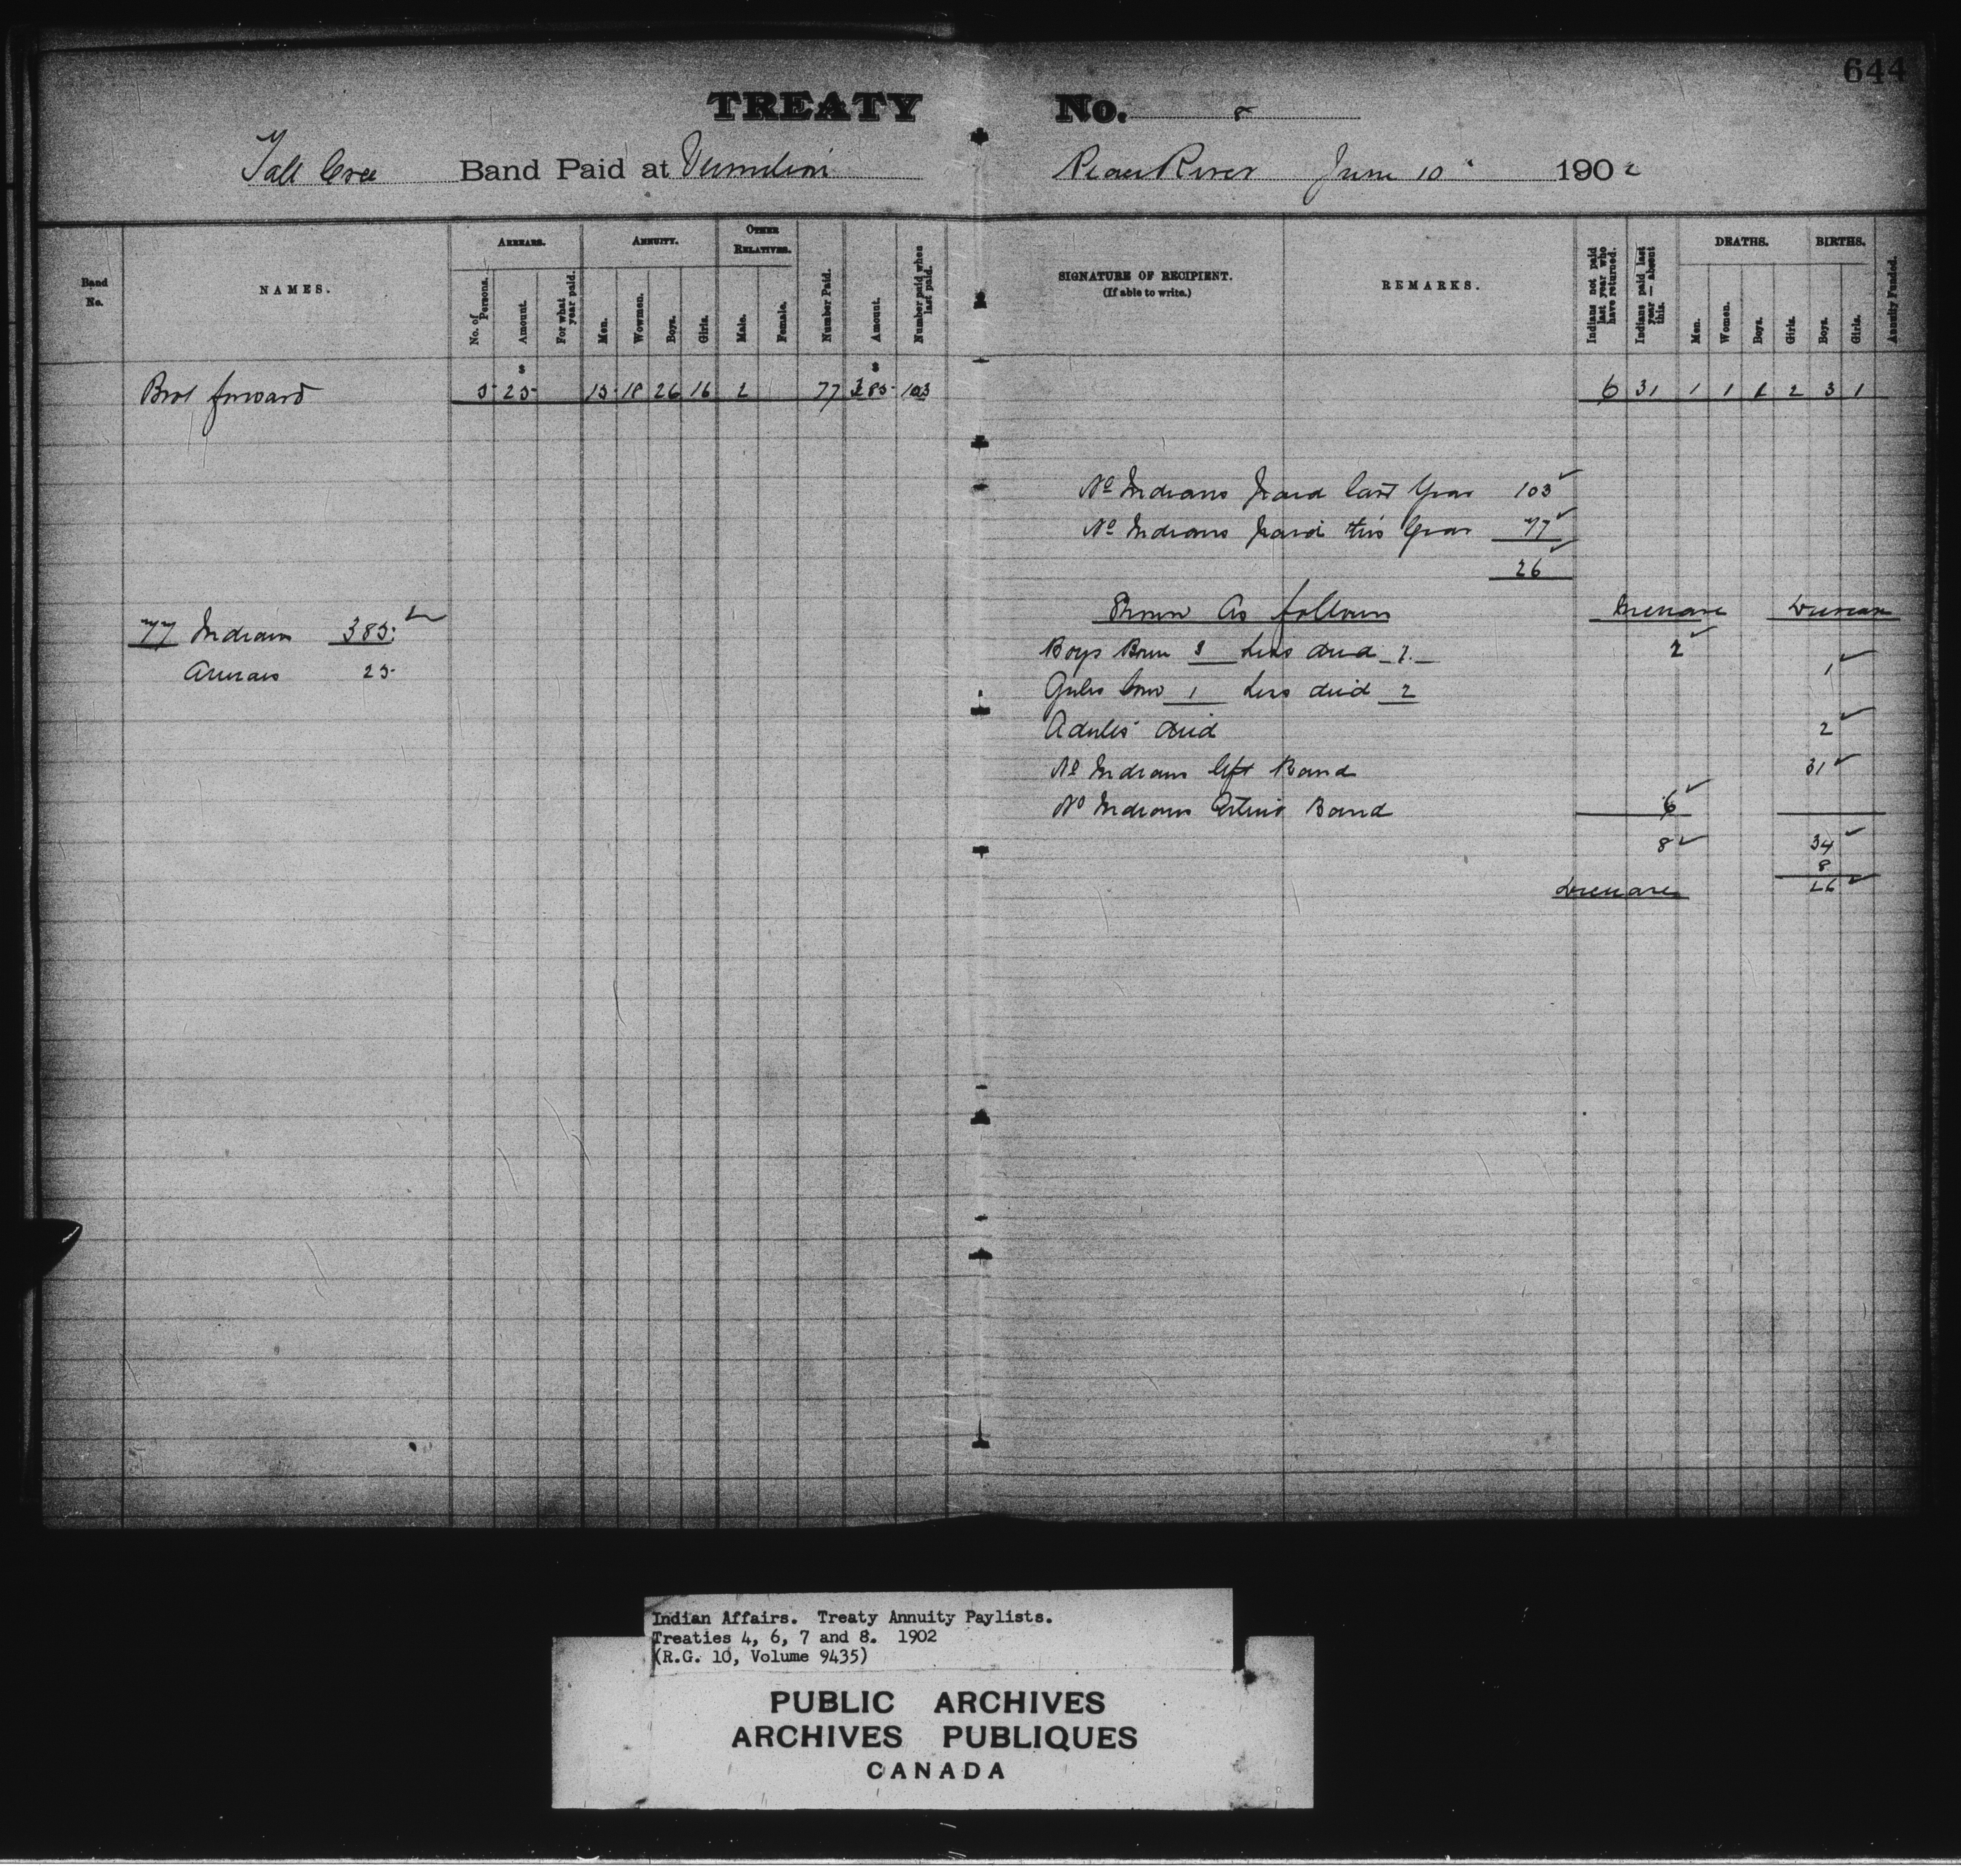 644
TREATY No. 8
Tall Cree Band Paid at Vermilion Peace River June 10 1902
Band No.
NAMES.
ARREARS.
No. of Persons.
Amount.
For what year paid.
ANNUITY.
Men.
Wowmen.
Boys.
Girls.
OTHER RELATIVES.
Male.
Female.
Number Paid.
Amount.
Number paid when last paid.
SIGNATURE OF RECIPIENT.
(If able to write.)
REMARKS.
Indians not paid last year who have returned.
Indians paid last year — absent this.
DEATHS.
Men.
Women.
Boys.
Girls.
BIRTHS.
Boys.
Girls.
Annuity Funded.
$ $
Brot forward 5 25 15 18 26 16 2 77 385 103 6 31 1 1 1 2 3 1
No Indians paid last Year 103
No Indians paid this Year 77
26
Shown As follows Increase Decrease
77 Indians 385
Arrears 25
Boys Born 3 Less died 1 2
Girls born 1 Less died 2 1
Adults died 2
No Indians left Band 31
No Indians Band 6
8 34
8
Decrease 26
Indian Affairs. Treaty Annuity Paylists.
Treaties 4, 6, 7 and 8. 1902
(R.G. 10, Volume 9435)
PUBLIC ARCHIVES
ARCHIVES PUBLIQUES
CANADA